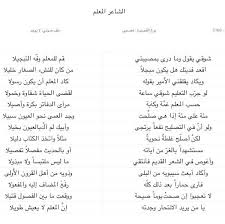 الشاعر المعلم
قم للمعلم وفه التبجيلا شوقي يقول وما درى بمصيبتي
من كان للنشء الصغار خليلا اقعد فديتك هل يكون مبجلا
كاد المعلم أن يكون رسولا ويكاد يقلقني الأمير بقوله
لقضى الحياة شقاوة وخمولا لو جرب التعليم شوقي ساعة
مرأى الدفاتر بكرة وأصيلا حسب المعلم غمة وكآبة
وجد العمى نحو العيون سبيلا مئة على مئة إذا هي صلحت
وأبيك لم أك بالعيون بخيلا ولو أن في التصليح نفعا يرتجى
مثلا واتخذ الكتاب دليلا لكن أصلح غلطة نحوية
أو بالحديث مفصلا تفصيلا مستشهدا بالغر من آياته
ما ليس ملتبسا ولا مبذولا وأغوص في الشعر القديم فأنتقي
وذويه من أهل القرون الأولى وأكاد أبعث سيبويه من البلى
رفع المضاف إليه والمفعولا فأرى حمارا بعد ذلك كله
ووقعت ما بين الفصول قتيلا لا تعجبوا إن صحت يوما صيحة
إن المعلم لا يعيش طويلا يا من يريد الانتحار وجدته